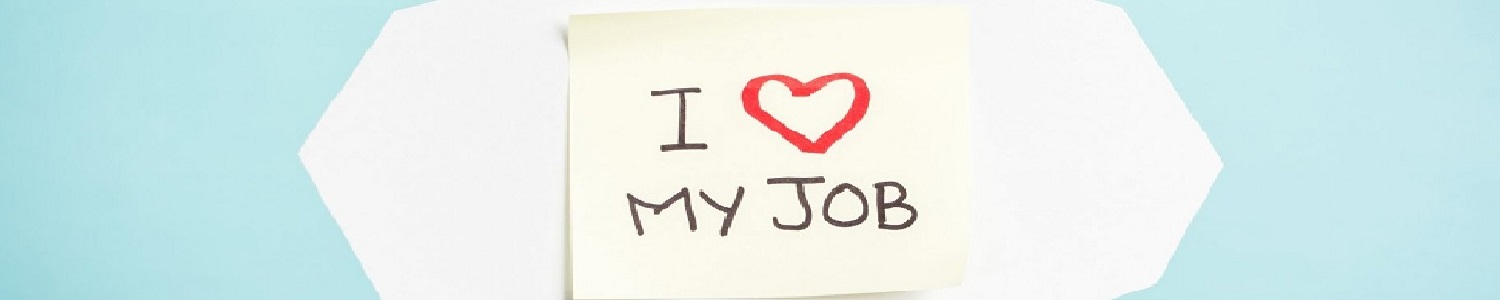 I ❤
MY JOB